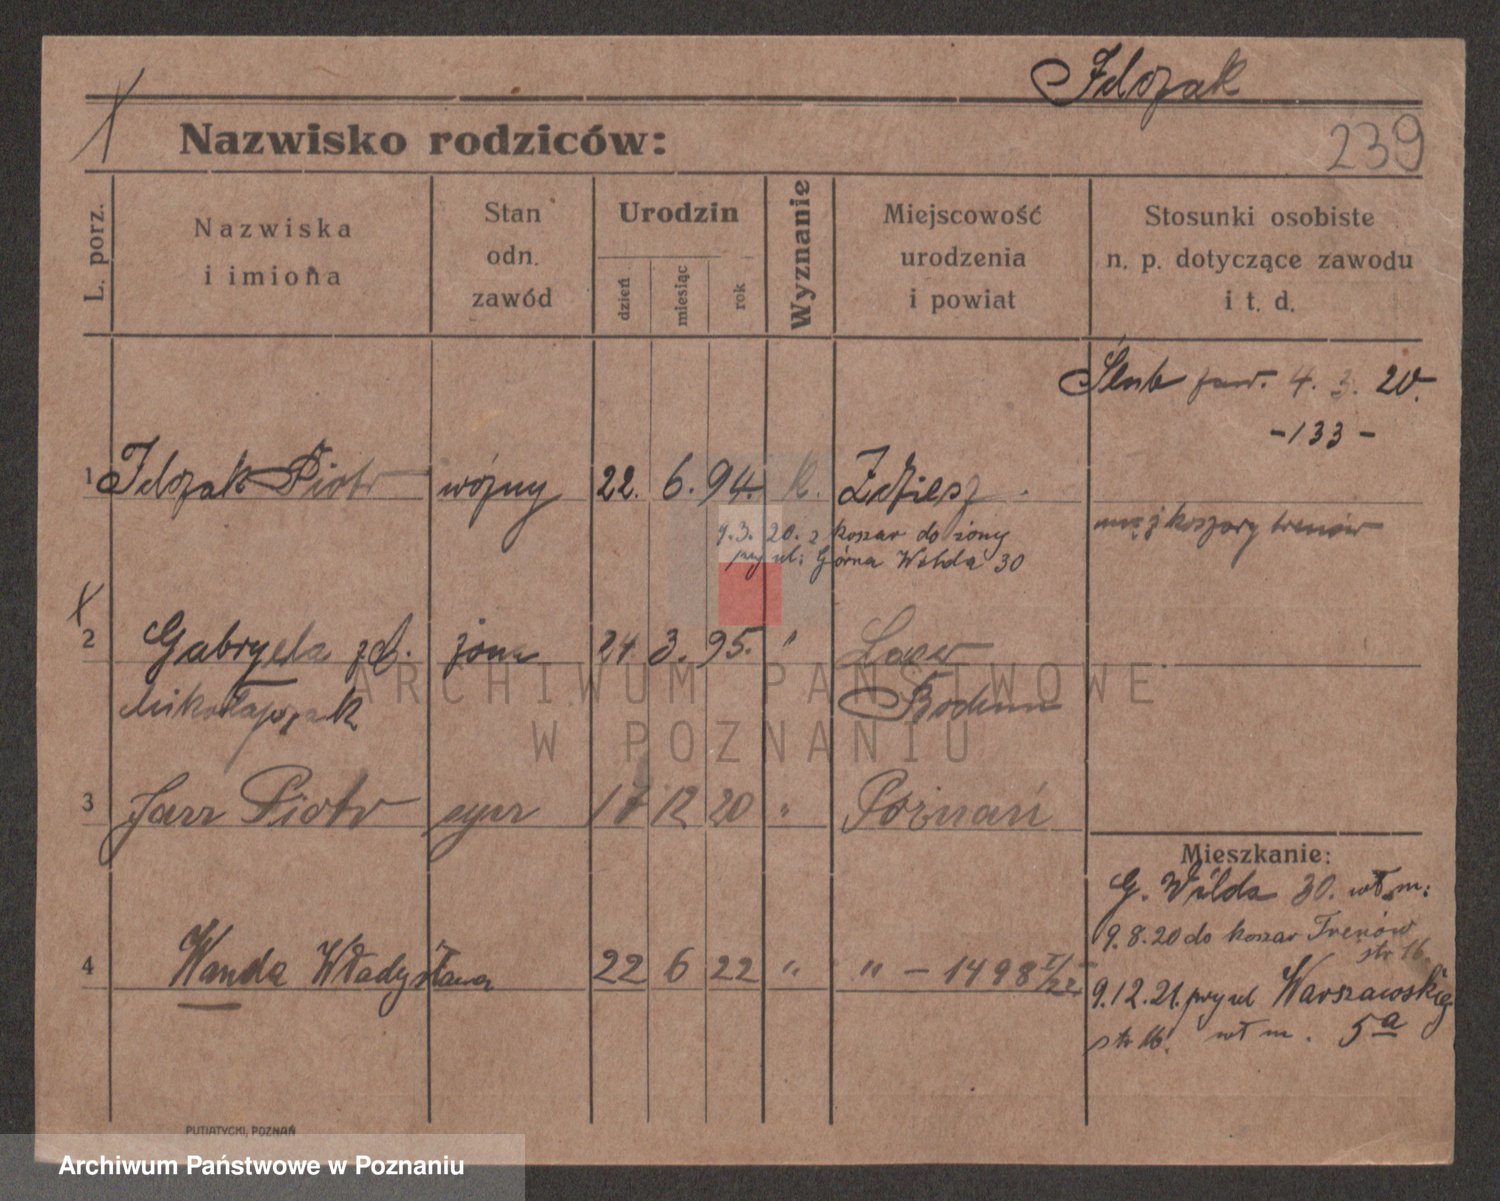 Ilczak
239
Nazwisko rodziców:
L. porz.
Nazwiska
i imiona
Stan
odn.
zawód
Urodzin
dzień
miesiąc
rok
Wyznanie
Miejscowość
urodzenia
i powiat
Stosunki osobiste
n. p. dotyczące zawodu
i t. d.
Ślub zaw. 4. 3. 20.
-133-
1 Ilczak Piotr woźny 22. 6. 94. k.
mąż koszary trenów
9. 3. 20. z koszar do żony
przy ul: Górna Wilda 30
2 Gabryela zd. żona 24 3. 95. "
Mikołajczak Bochum
3 Jan Piotr syn 17 12 20 " Poznań
4 Wanda Władysława 22 6 22 " " - 1498 I/22
Mieszkanie:
G. Wilda 30. wł. m:
9. 8. 20 do koszar Trenów
str 16.
9. 12. 21. przy ul Warszawskiej
str 16. wł m. 5a
PUTIATYCKI, POZNAŃ
ARCHIWUM PAŃSTWOWE
W POZNANIU
Archiwum Państwowe w Poznaniu